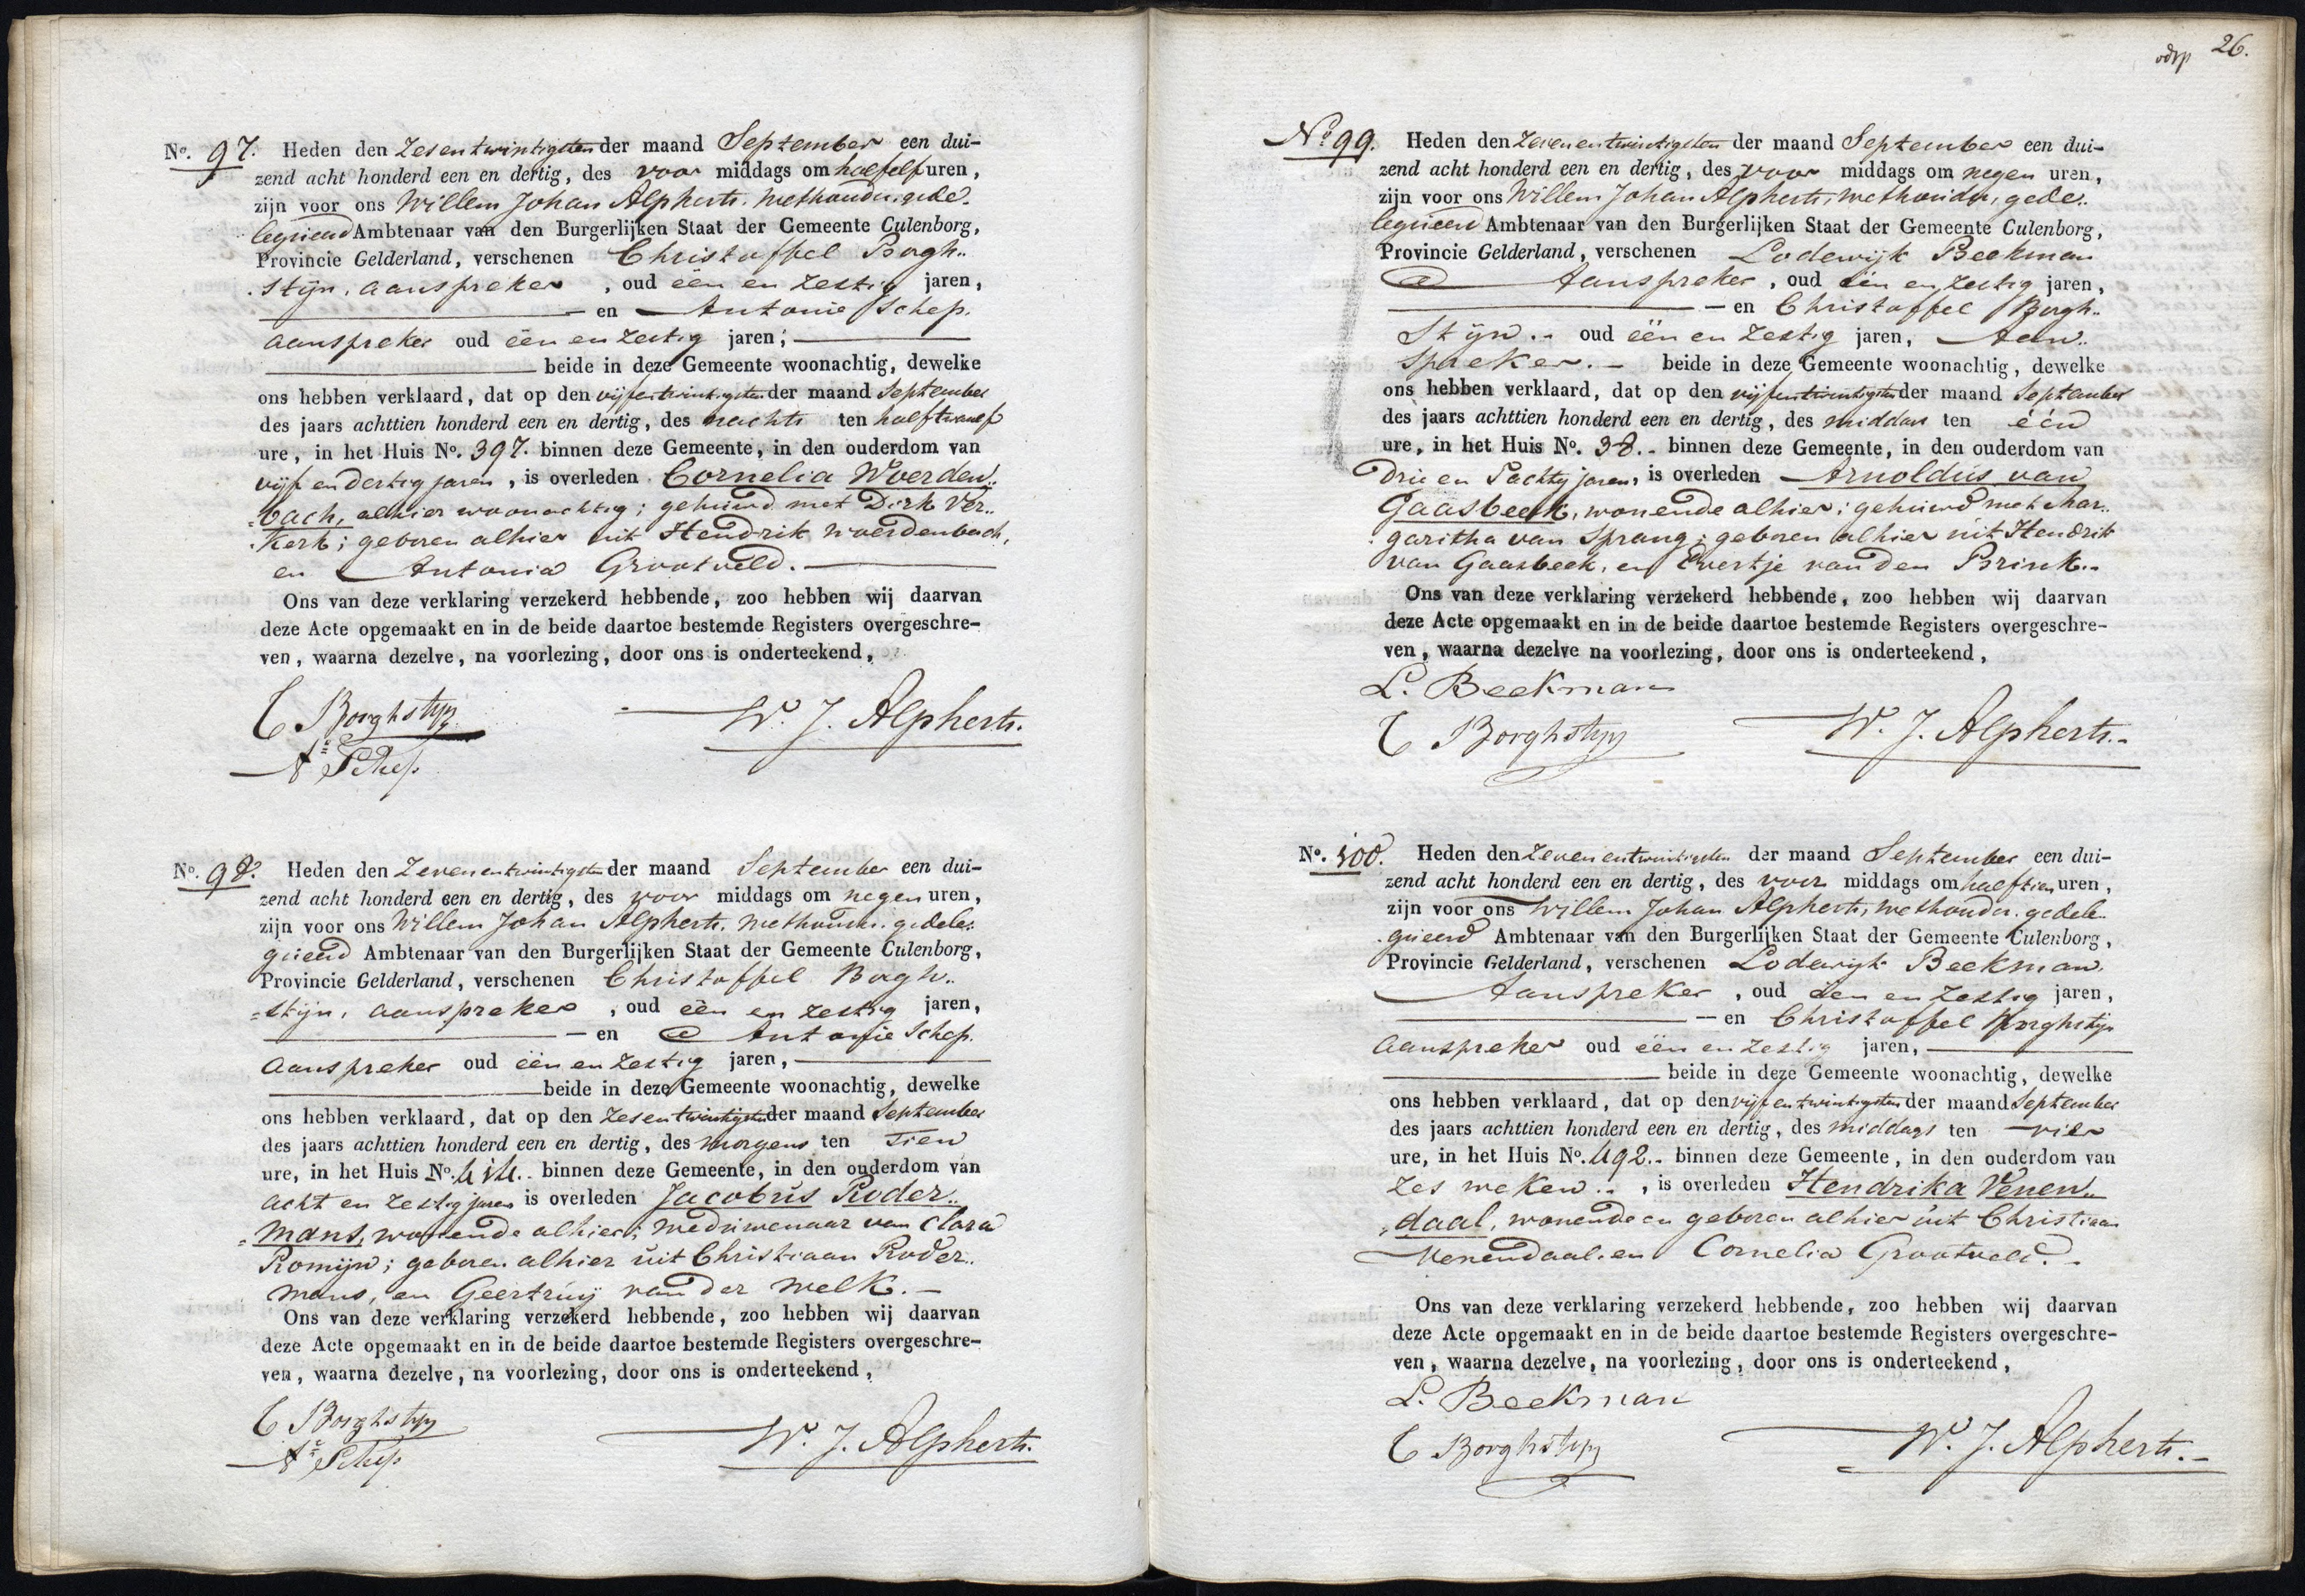 No. 97. Heden den Zesentwintigsten der maand September een dui-
zend acht honderd een en dertig, des voor middags om half elf uren,
zijn voor ons Willem Johan Alpherts. Wethouder, gede-
legueerd Ambtenaar van den Burgerlijken Staat der Gemeente Culenborg,
Provincie Gelderland, verschenen Christoffel Borgh..
stijn, aanspreker, oud één en zestig jaren,
en Antonie Schep.
aanspreker oud één en zestig jaren;
beide in deze Gemeente woonachtig, dewelke
ons hebben verklaard, dat op den vijfentwintigsten der maand September
des jaars achttien honderd een en dertig, des nachts ten half twaelf
ure, in het Huis No. 397. binnen deze Gemeente, in den ouderdom van
vijf en dertig jaren, is overleden Cornelia Woerden..
bach, alhier woonachtig; gehuwd met Dirk Ver..
kerk; geboren alhier uit Hendrik Woerdenbach,
en Antonia Grootveld.
Ons van deze verklaring verzekerd hebbende, zoo hebben wij daarvan
deze Acte opgemaakt en in de beide daartoe bestemde Registers overgeschre-
ven, waarna dezelve, na voorlezing, door ons is onderteekend,
C Borghstyn W. J. Alpherts.
As Schep
No. 98. Heden den Zevenentwintigsten der maand September een dui-
zend acht honderd een en dertig, des voor middags om negen uren,
zijn voor ons Willem Johan Alpherts. Wethouder. gedele-
gueerd Ambtenaar van den Burgerlijken Staat der Gemeente Culenborg,
Provincie Gelderland, verschenen Christoffel Borgh..
stijn, aanspreker, oud één en zestig jaren,
en Antonie Schep.
aanspreker oud één en zestig jaren,
beide in deze Gemeente woonachtig, dewelke
ons hebben verklaard, dat op den zesentwintigsten der maand September
des jaars achttien honderd een en dertig, des morgens ten tien
ure, in het Huis No. binnen deze Gemeente, in den ouderdom van
acht en zestig jaren is overleden Jacobus Roder..
mans, wonende alhier; weduwenaar van Clara
Romijn; geboren alhier uit Christiaan Roder..
mans, en Geertruij van der Welk.
Ons van deze verklaring verzekerd hebbende, zoo hebben wij daarvan
deze Acte opgemaakt en in de beide daartoe bestemde Registers overgeschre-
ven, waarna dezelve, na voorlezing, door ons is onderteekend,
C Borghstyn W. J. Alpherts.
As Schep
26.
No 99. Heden den Zevenentwintigsten der maand September een dui-
zend acht honderd een en dertig, des voor middags om negen uren,
zijn voor ons Willem Johan Alpherts, Wethouder, gede-
legueerd Ambtenaar van den Burgerlijken Staat der Gemeente Culenborg,
Provincie Gelderland, verschenen Lodewijk Beekman
Aanspreker, oud één en zestig jaren,
en Christoffel Borgh..
stijn.. oud één en zestig jaren, Aan..
spreker. beide in deze Gemeente woonachtig, dewelke
ons hebben verklaard, dat op den vijfentwintigsten der maand September
des jaars achttien honderd een en dertig, des middags ten één
ure, in het Huis No. 38. binnen deze Gemeente, in den ouderdom van
drie en tachtig jaren, is overleden Arnoldus van
Gaasbeek, wonende alhier; gehuwd met Mar..
garitha van Sprang; geboren alhier uit Hendrik
van Gaasbeek, en Evertje van den Brink.
Ons van deze verklaring verzekerd hebbende, zoo hebben wij daarvan
deze Acte opgemaakt en in de beide daartoe bestemde Registers overgeschre-
ven, waarna dezelve na voorlezing, door ons is onderteekend,
L. Beekman
C Borghstyn W. J. Alpherts.
No. 100. Heden den Zevenentwintigsten der maand September een dui-
zend acht honderd een en dertig, des voor middags om half tien uren,
zijn voor ons Willem Johan Alpherts, Wethouder. gedele-
gueerd Ambtenaar van den Burgerlijken Staat der Gemeente Culenborg,
Provincie Gelderland, verschenen Lodewijk Beekman.
Aanspreker, oud één en zestig jaren,
en Christoffel Borghstijn
aanspreker oud één en zestig jaren,
beide in deze Gemeente woonachtig, dewelke
ons hebben verklaard, dat op den vijfentwintigsten der maand September
des jaars achttien honderd een en dertig, des middags ten vier
ure, in het Huis No. 492. binnen deze Gemeente, in den ouderdom van
zes weken.. , is overleden Hendrika Venen..
daal, wonende en geboren alhier uit Christiaan
Venendaal. en Cornelia Grootveld.
Ons van deze verklaring verzekerd hebbende, zoo hebben wij daarvan
deze Acte opgemaakt en in de beide daartoe bestemde Registers overgeschre-
ven, waarna dezelve, na voorlezing, door ons is onderteekend,
L. Beekman
C Borghstyn W. J. Alpherts.